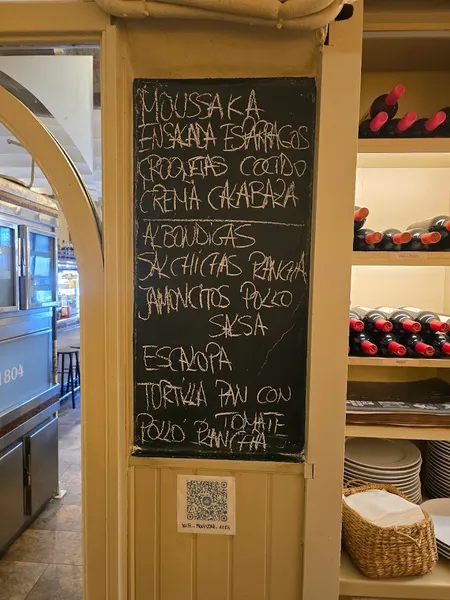 MOUSSAKA
ENSALADA ESPARRAGOS
CROQUETAS COCIDO
CREMA CALABAZA
ALBONDIGAS
SALCHICHAS PLANCHA
JAMONCITOS POLLO
SALSA
ESCALOPA
TORTILLA PAN CON
TOMATE
POLLO PLANCHA
1804